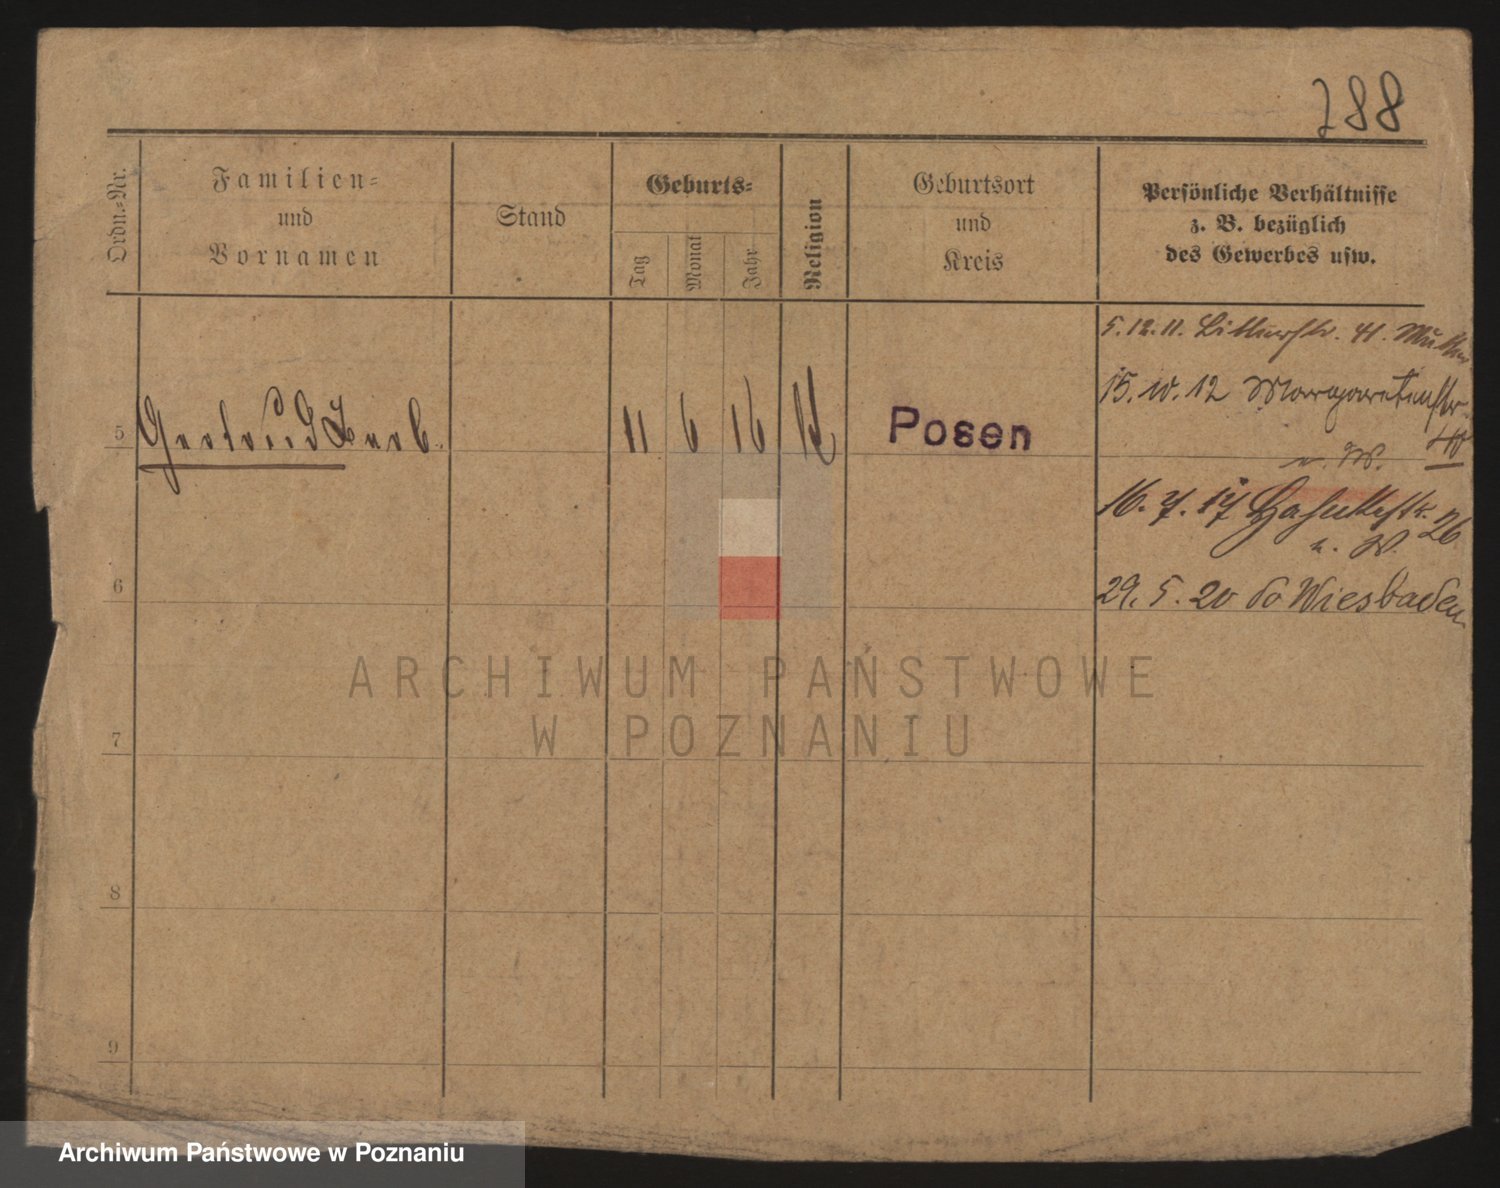 788
Ordn.=Nr.
Familien=
und
Vornamen
Stand
Geburts=
Tag
Monat
Jahr
Religion
Geburtsort
und
Kreis
Persönliche Verhältnisse
z. B. bezüglich
des Gewerbes usw.
5.12.11. 41.
15.10.12 Margaretenstr.
40
u. W.
5 Gertrud 11 6 16 Posen
16.7.17 26
u. W.
29.5.20 Wiesbaden
6
7
8
9
ARCHIWUM PAŃSTWOWE
W POZNANIU
Archiwum Państwowe w Poznaniu